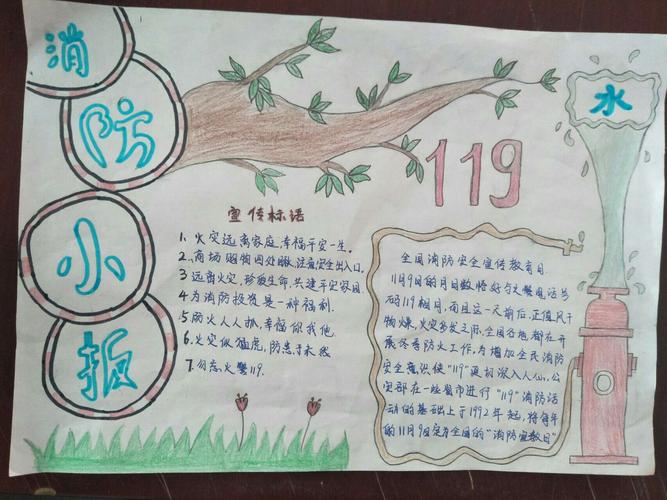 消
防
小
报
119
水
宣传标语
1、火灾远离家庭,幸福平安一生。
2、商场购物四处瞅,注意安全出入口.
3、远离火灾,珍爱生命,共建平安家园.
4、为消防投资是一种福利.
5、防火人人抓,幸福你我他.
6、火灾似猛虎,防患于未然
7、勿忘火警119.
全国消防安全宣传教育日
11月9日的月日数恰好与火警电话号
码119相同,而且这一天前后,正值风干
物燥,火灾多发之际,全国各地都在开
展冬季防火工作,为增加全民消防
安全意识,使"119"更加深入人心,公
安部在一些省市进行"119"消防活
动的基础上于1992年起,将每年
的11月9日定为全国的"消防宣教日"